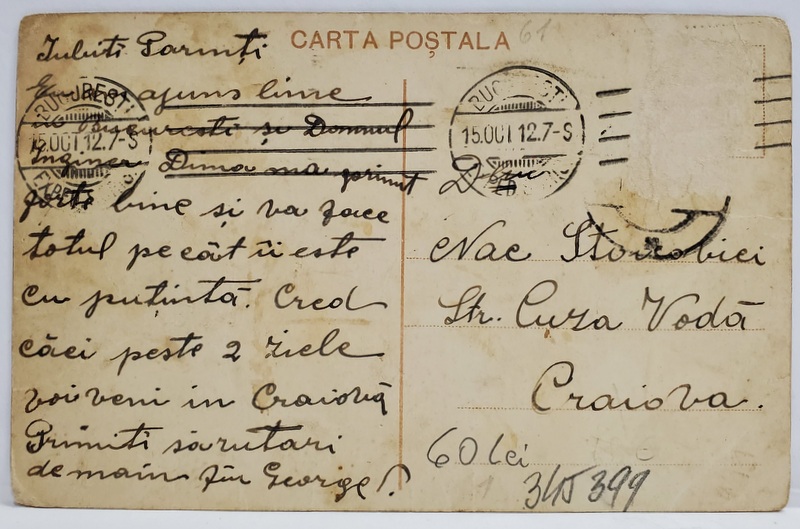 CARTA POȘTALA
61
Iubiti Parinți
ajuns bine
in Bucuresti și Domnul
Inginer Dima ma primit
forte bine și va face
totul pe cât îi este
cu putință. Cred
căci peste 2 ziele
voi veni in Craiova
Primiti sărutari
de maini fiu George
BUCURESTI
15.OCT.12.7-S
BUCURESTI
15.OCT.12.7-S
Nae
Str. Cuza Vodă
Craiova.
60 lei
345 399